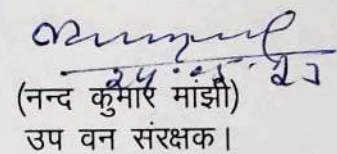 (नन्द कुमार मांझी)
उप वन संरक्षक।